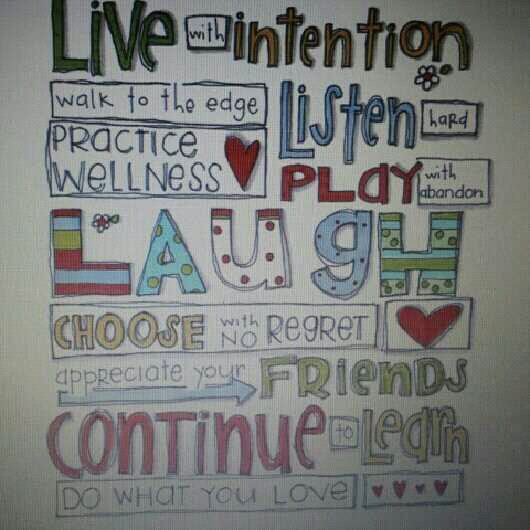 Live with intention
walk to the edge
Listen hard
PRACTICE
WELLNESS
PLAY with abandon
LAUgH
CHOOSE with NO REGRET
appreciate your FRIENDS
CONTINUE to LEARN
DO WHAT YOU LOVE